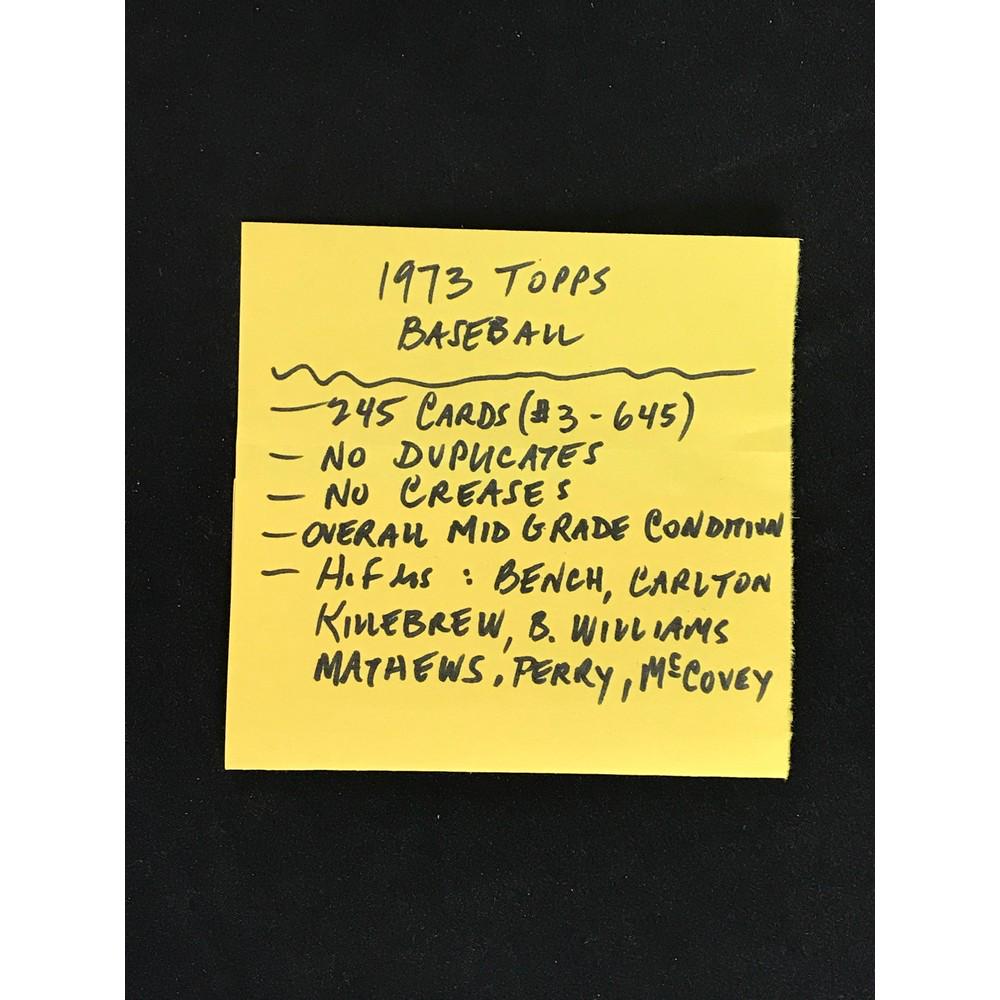 1973 TOPPS
BASEBALL
— 245 CARDS (#3 - 645)
— NO DUPLICATES
— NO CREASES
— OVERALL MID GRADE CONDITION
— H.F'ers : BENCH, CARLTON
KILLEBREW, B. WILLIAMS
MATHEWS, PERRY, McCOVEY